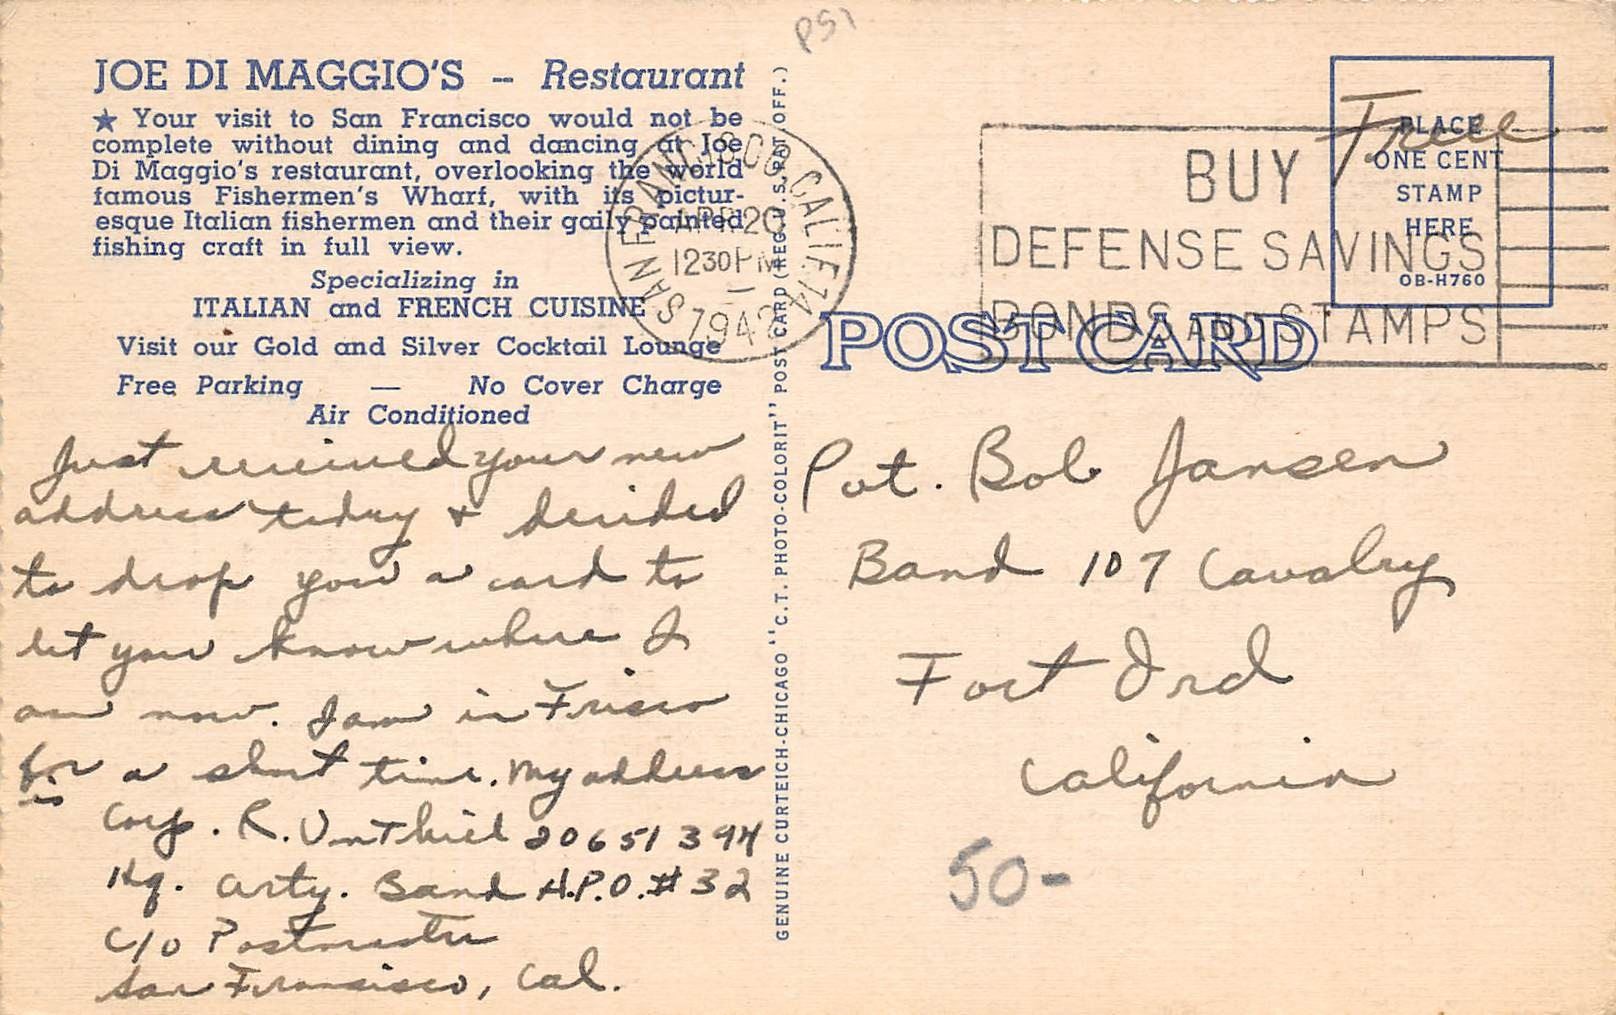 P51
JOE DI MAGGIO'S – Restaurant
★ Your visit to San Francisco would not be
complete without dining and dancing at Joe
Di Maggio's restaurant, overlooking the world
famous Fishermen's Wharf, with its pictur-
esque Italian fishermen and their gaily painted
fishing craft in full view.
Specializing in
ITALIAN and FRENCH CUISINE
Visit our Gold and Silver Cocktail Lounge
Free Parking — No Cover Charge
Air Conditioned
Just received your new
address today + decided
to drop you a card to
let you know where I
am now. I am in Frisco
for a short time. My address
is
Corp. R. Vonthiel 20651394
Hq. Arty. Band A.P.O. #32
C/O Postmaster
San Francisco, Cal.
GENUINE CURTEICH-CHICAGO "C.T. PHOTO-COLORIT" POST CARD (REG. U.S. PAT. OFF.)
SAN FRANCISCO, CALIF.
APR 20
1230 PM
1942
BUY
DEFENSE SAVINGS
BONDS AND STAMPS
Free
PLACE
ONE CENT
STAMP
HERE
OB-H760
POST CARD
Pvt. Bob Jansen
Band 107 Cavalry
Fort Ord
California
50-